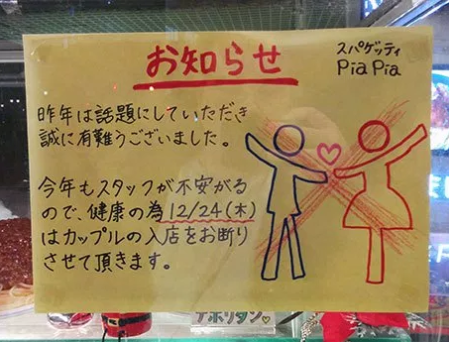 お知らせ
スパゲッティ
Pia Pia
昨年は話題にしていただき
誠に有難うございました。
今年もスタッフが不安がる
ので、健康の為12/24(木)
はカップルの入店をお断り
させて頂きます。
ナポリタン